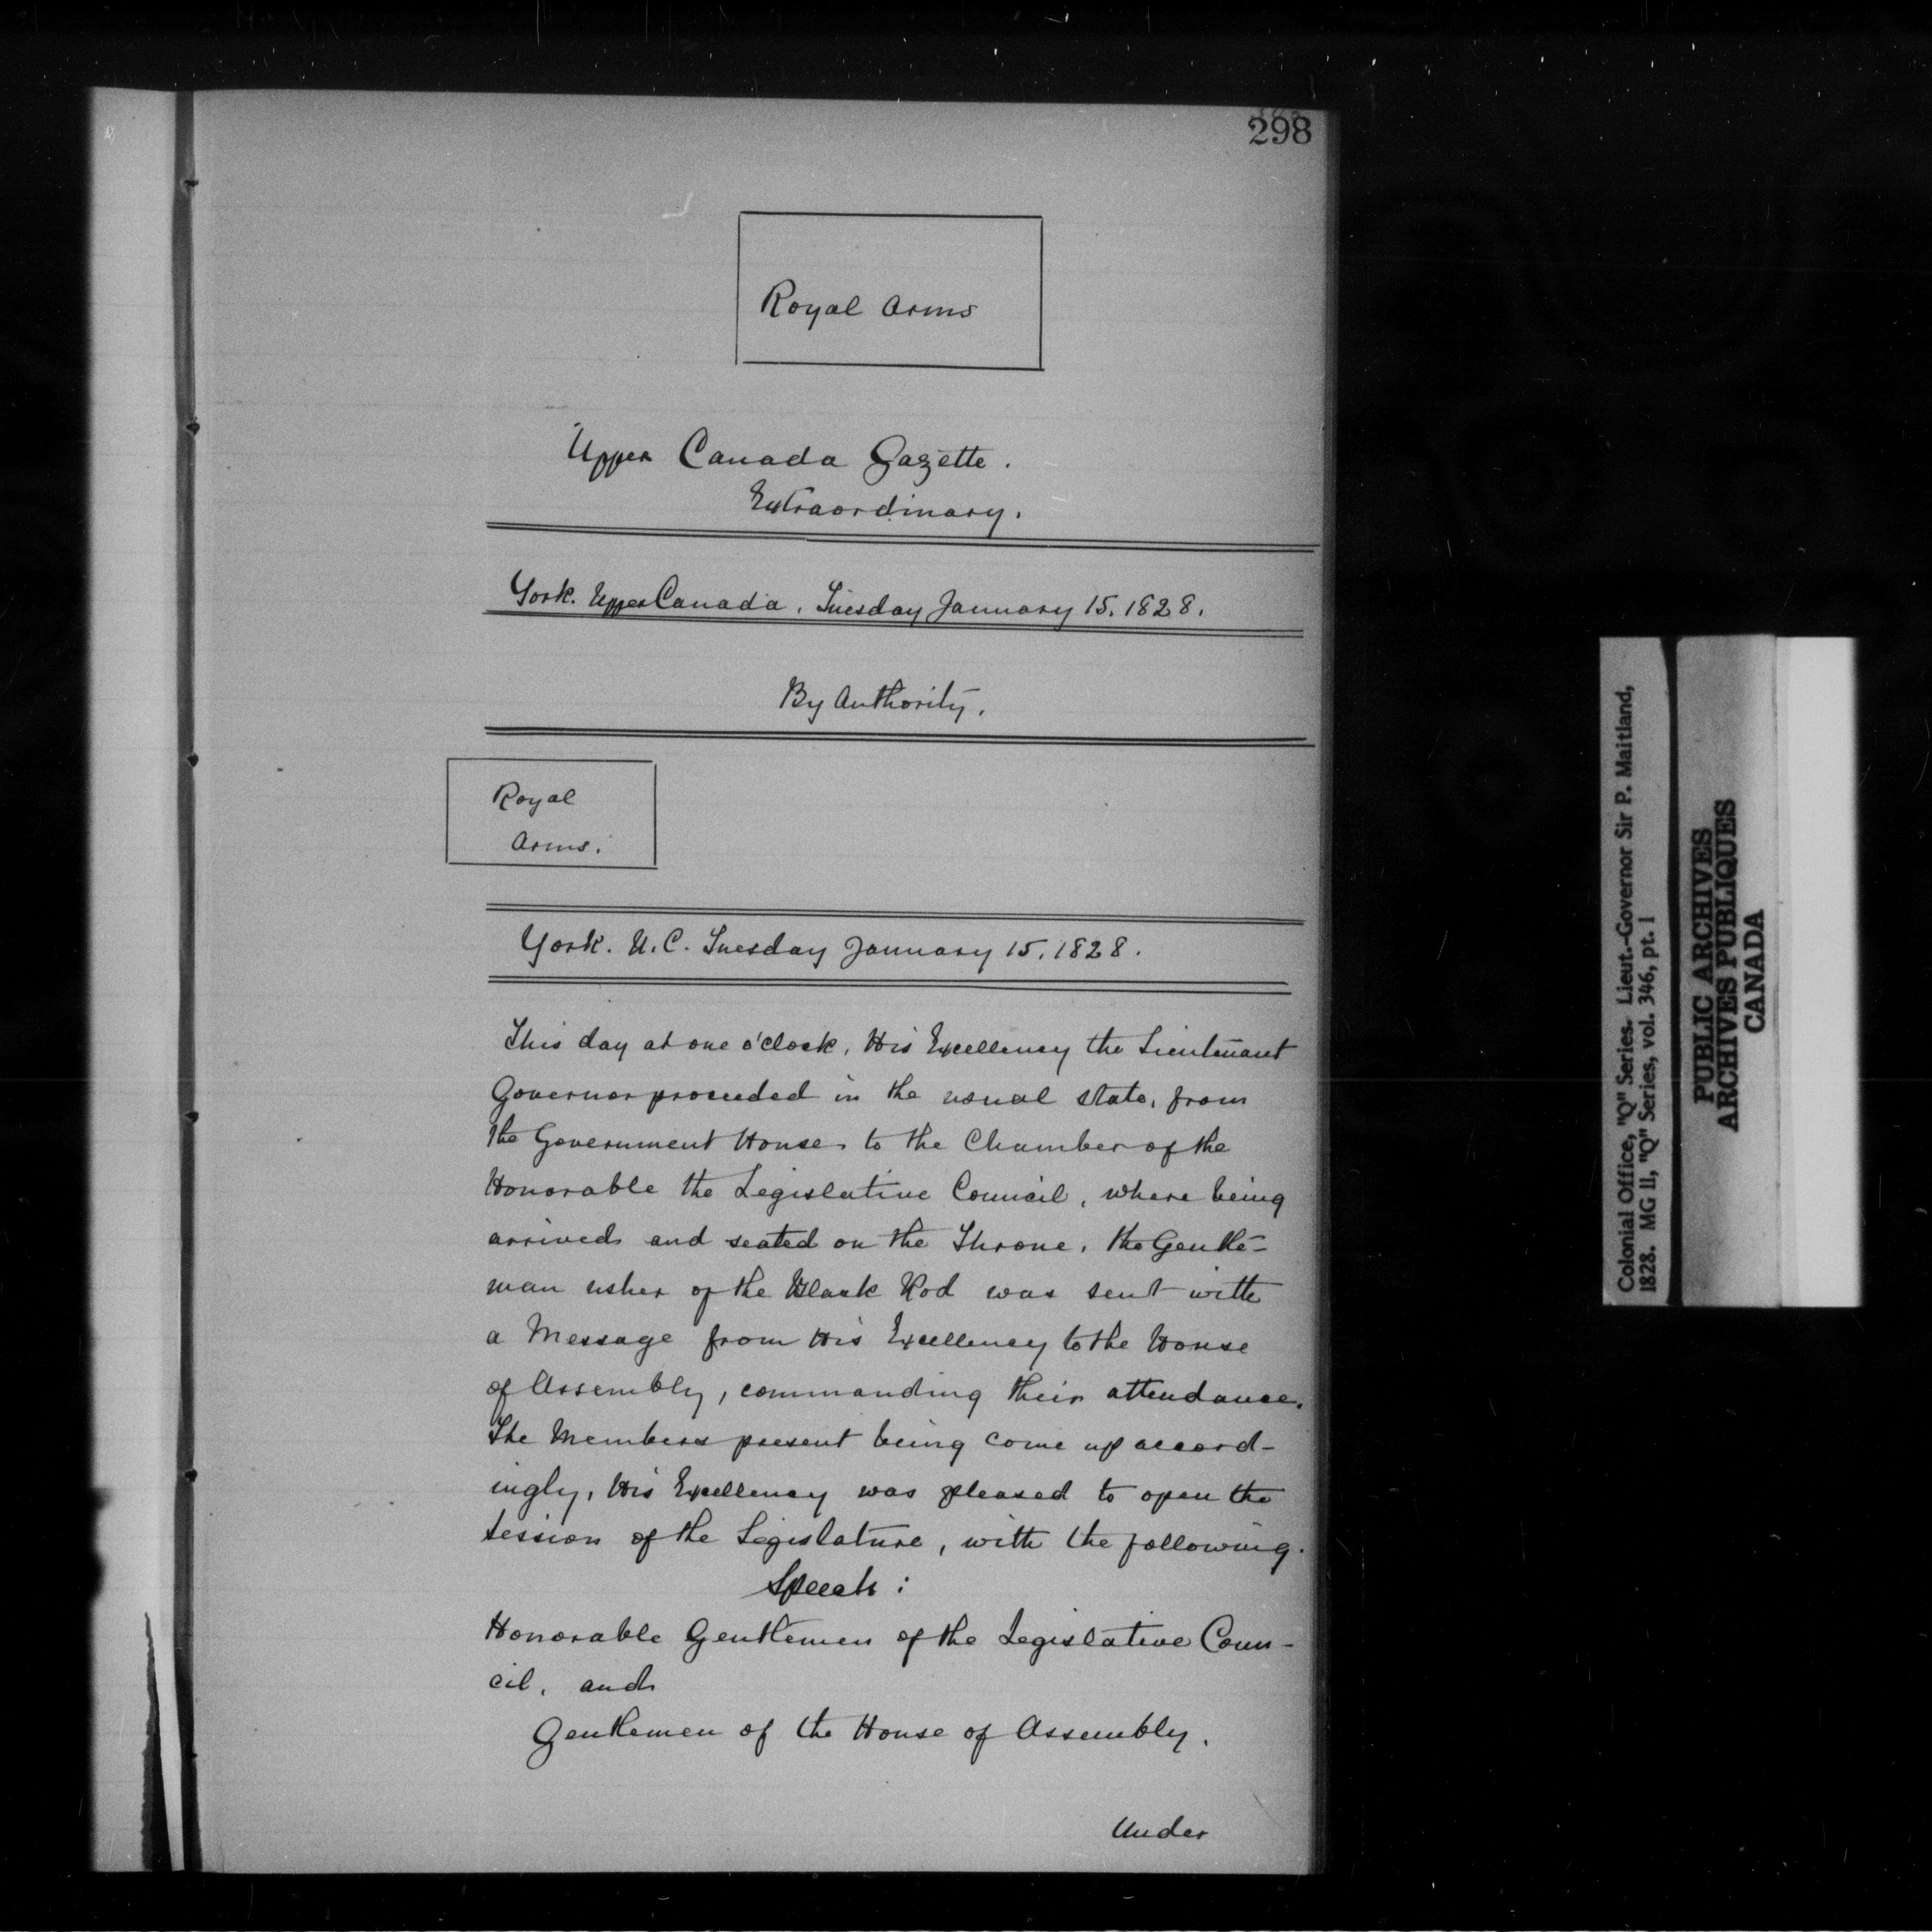 298
Royal Arms
Upper Canada Gazette.
Extraordinary.
York. Upper Canada, Tuesday January 15. 1828.
By Authority.
Royal
Arms.
York. U.C. Tuesday January 15. 1828.
This day at one o'clock, His Excellency the Lieutenant
Governor proceeded in the usual state, from
the Government House, to the Chamber of the
Honorable the Legislative Council, where being
arrived and seated on the Throne, the Gentle-
man usher of the Black Rod was sent with
a Message from His Excellency to the House
of Assembly, commanding their attendance.
The Members present being come up accord-
ingly, His Excellency was pleased to open the
session of the Legislature, with the following.
Speech:
Honorable Gentlemen of the Legislative Coun-
cil, and
Gentlemen of the House of Assembly.
Under
Colonial Office, "Q" Series. Lieut.-Governor Sir P. Maitland,
1828. MG 11, "Q" Series, vol. 346, pt. 1
PUBLIC ARCHIVES
ARCHIVES PUBLIQUES
CANADA